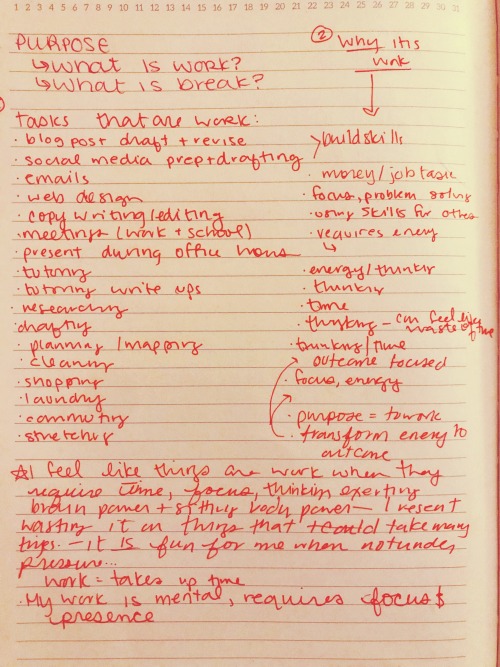 1 2 3 4 5 6 7 8 9 10 11 12 13 14 15 16 17 18 19 20 21 22 23 24 25 26 27 28 29 30 31
PURPOSE
↳ What is work?
↳ What is break?
Tasks that are work:
· blog post draft + revise
· social media prep + drafting
· emails
· web design
· copy writing/editing
· meetings (work + school)
· present during office hours
· tutoring
· tutoring write ups
· researching
· drafting
· planning / mapping
· cleaning
· shopping
· laundry
· commuting
· stretching
② Why it is
work
> build skills
· money/job task
· focus, problem solving
· using skills for others
· requires energy
· energy/thinking
· thinking
· time
· thinking - can feel like
waste of time
· thinking/time
outcome focused
· focus, energy
· purpose = to work
· transform energy to
outcome
☆ I feel like things are work when they
require time, focus, thinking exerting
brain power + body power — I resent
wasting it on things that could take many
trips. - it IS fun for me when not under
pressure...
work = takes up time
· My work is mental, requires focus &
presence